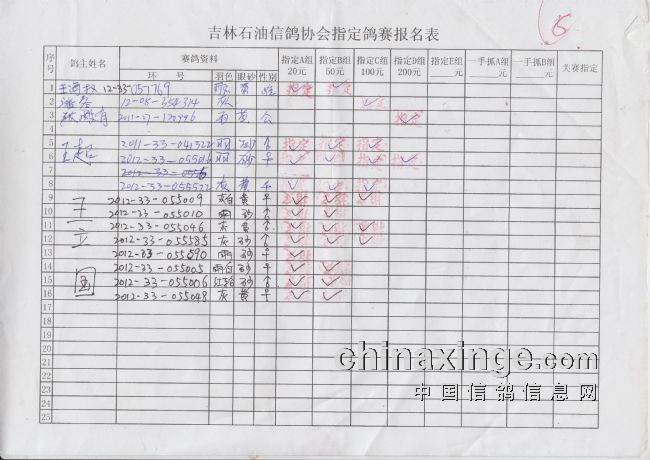 吉林石油信鸽协会指定鸽赛报名表
序号 鸽主姓名 赛鸽资料 指定A组 20元 指定B组 50元 指定C组 100元 指定D组 200元 指定E组 元 一手抓A组 元 一手抓B组 元 关赛指定
环 号 羽色 眼砂 性别
1 12-33-057769 黄 雄 指定 指定
2 12-05-354314 灰 指定
3 2011-17-120996 雨 黄 公 指定
4
5 王超 2011-33-041322 雨 砂 ♂ 指定 指定 指定
6 2012-33-055016 雨 砂 ♀ 指定 指定
7
8 2012-33-055522 灰 黄 ♀
9 王立国 2012-33-055009 黄 ♀
10 2012-33-055010 雨 砂 ♂
11 2012-33-055046 灰 黄 ♂
12 2012-33-055585 灰 砂 ♂
13 2012-33-055090 雨 砂 ♀
14 2012-33-055005 雨白 砂 ♀
15 2012-33-055006 砂 ♂
16 2012-33-055048 灰 黄 ♀
17
18
19
20
21
22
23
24
25
chinaxinge.com
中国信鸽信息网